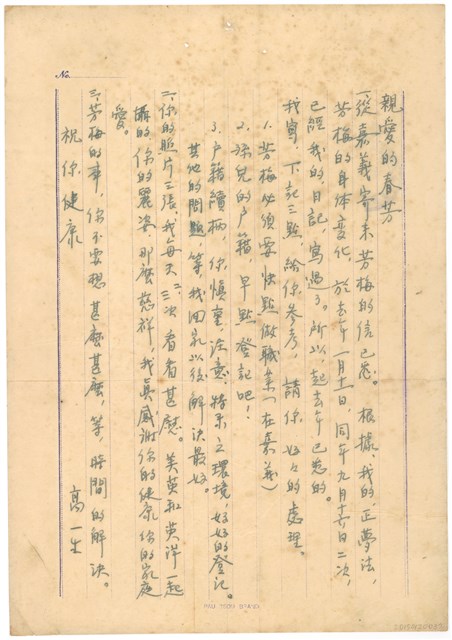 No.
親愛的春芳
一、從嘉義寄來芳梅的信已悉。根據、我的、正夢法、
芳梅的身体變化、於去年一月十一日、同年九月十六日二次、
已經我的、日記、寫過了。所以、起去年已悉的。
我寫、下記三點、給你參考、請你好々的處理。
1. 芳梅必須要快點做職業（在嘉義）
2. 孫兒的户籍、早點登記吧！
3. 户籍續柄、你慎重、注意、特来之環境、好好的登記。
其他的問題、等、我回家以後解決最好。
二、你的照片三張、我每天二、三次看看甚慰。美英和英洋一起
攝的、你的麗姿、那麽慈祥、我眞感谢你的健康、你的家庭
愛。
三、芳梅的事、你不要想甚麽甚麽、等、時間的解決。
祝你健康
高一生